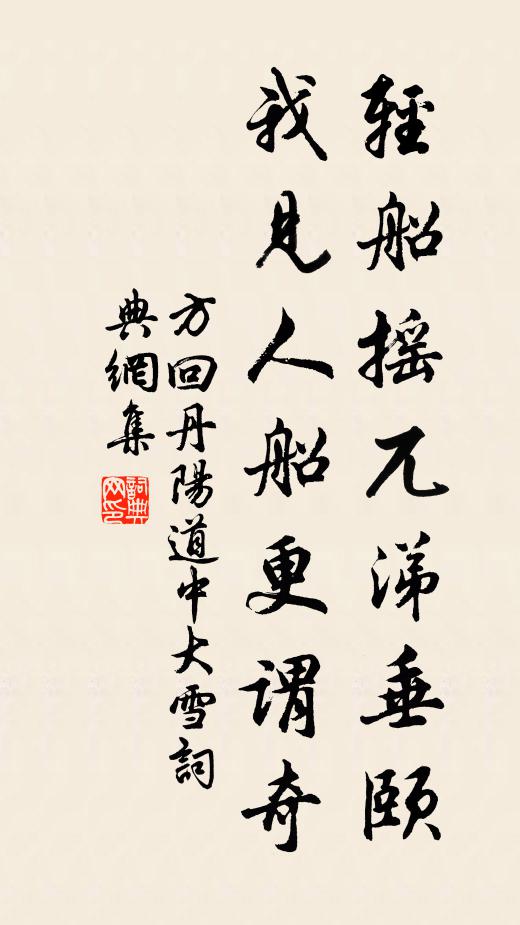 輕船摇兀涕垂頤
我見人船更謂奇
方回丹陽道中大雪詞
典網集
詞典网印